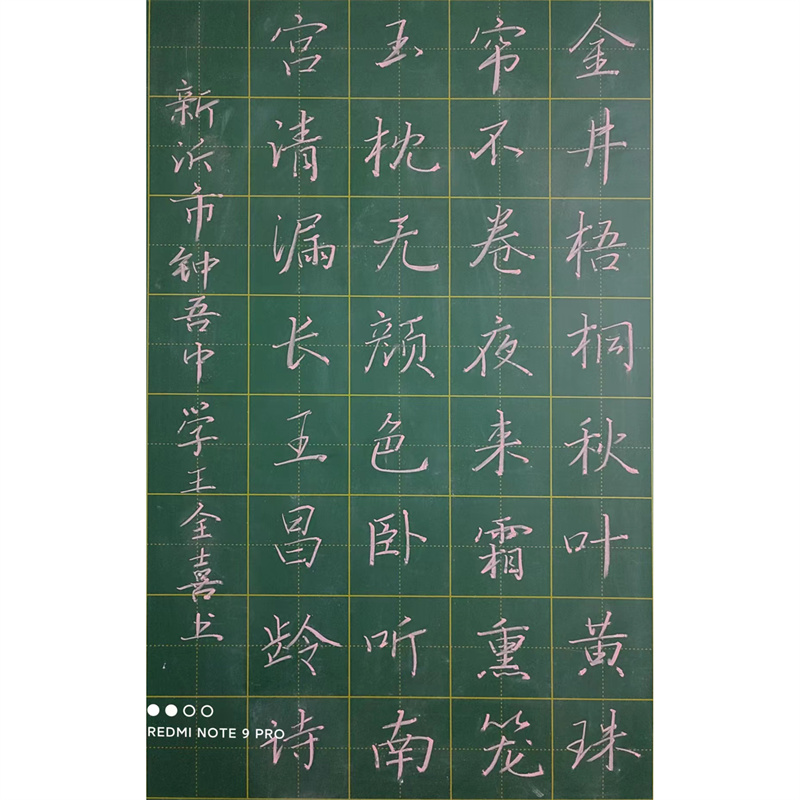 金井梧桐秋叶黄珠
帘不卷夜来霜熏笼
玉枕无颜色卧听南
宫清漏长王昌龄诗
新沂市钟吾中学王全喜书
REDMI NOTE 9 PRO